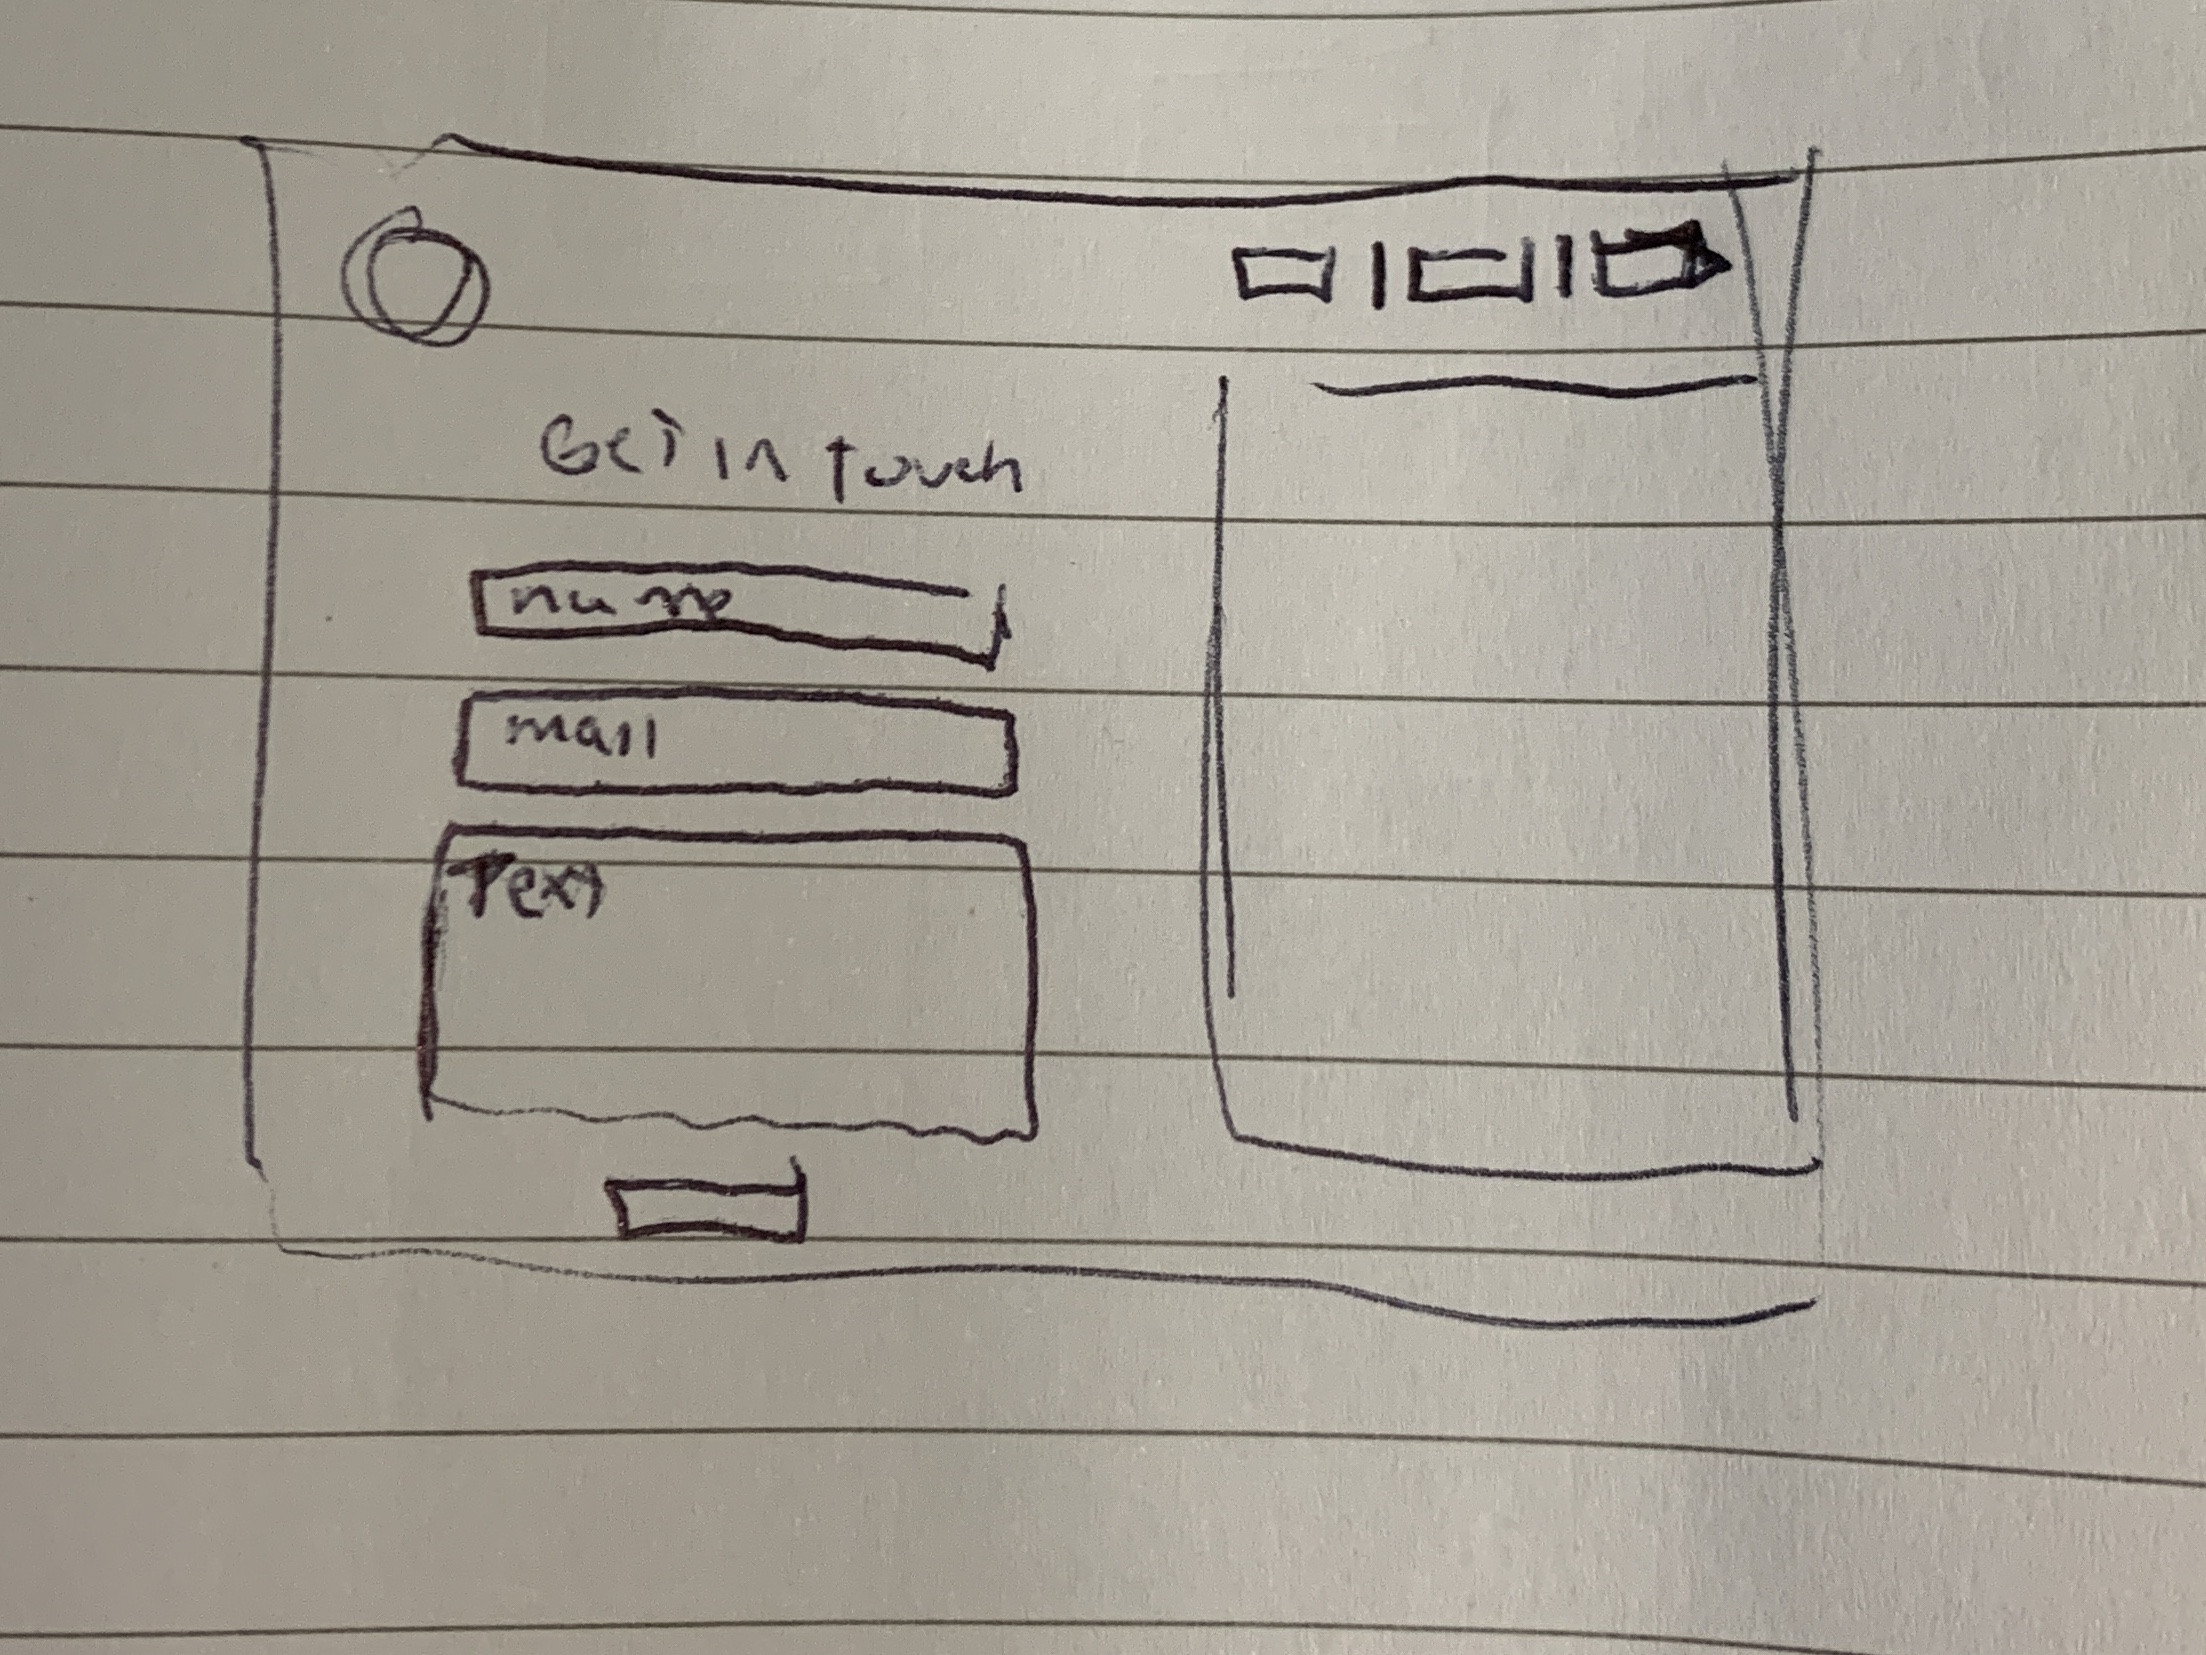 Get in touch
name
mail
Text